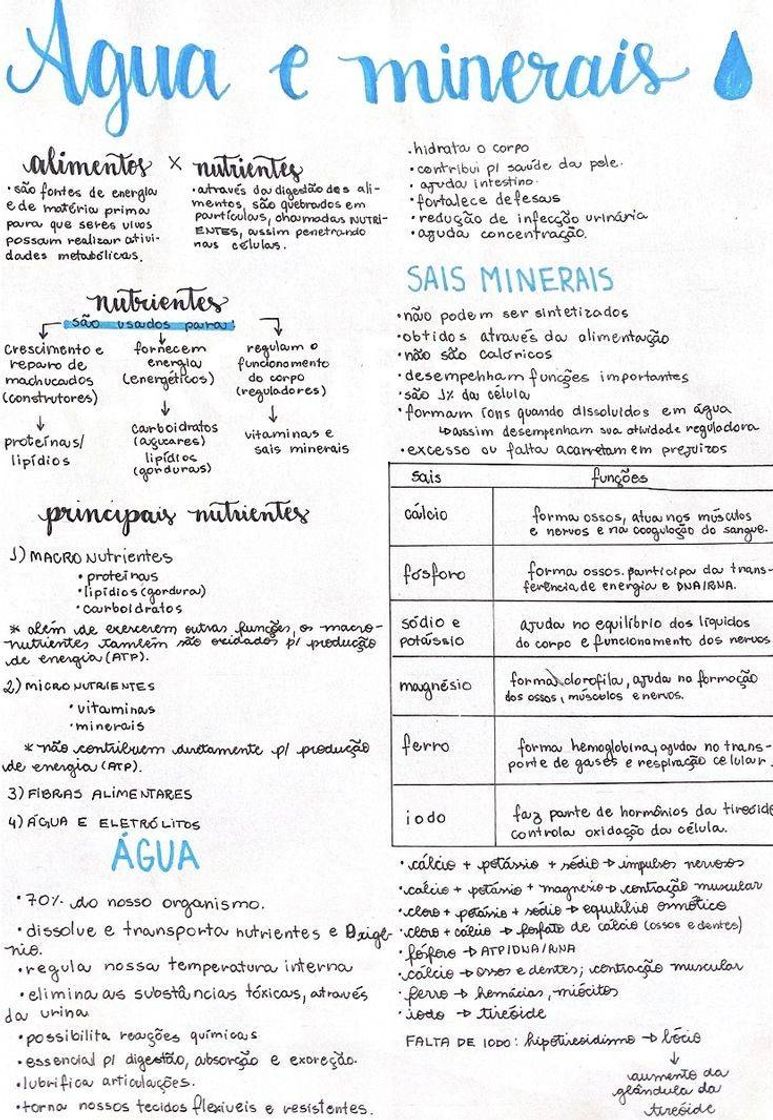 Água e minerais
alimentos x nutrientes
• são fontes de energia
e de matéria prima
para que seres vivos
possam realizar ativi-
dades metabólicas.
• através da digestão dos ali-
mentos, são quebrados em
partículas, chamadas NUTRI-
ENTES, assim penetrando
nas células.
nutrientes
são usados para:
crescimento e
reparo de
machucados
(construtores)
↓
proteínas/
lipídios
fornecem
energia
(energéticos)
↓
carboidratos
(açucares)
lipídios
(gorduras)
regulam o
funcionamento
do corpo
(reguladores)
↓
vitaminas e
sais minerais
principais nutrientes
1) MACRO nutrientes
• proteínas
• lipídios (gordura)
• carboidratos
* além de exercerem outras funções, os macro-
nutrientes também são oxidados p/ produção
de energia (ATP).
2) MICRONUTRIENTES
• vitaminas
• minerais
* não contribuem diretamente p/ produção
de energia (ATP).
3) FIBRAS ALIMENTARES
4) ÁGUA E ELETRÓLITOS
ÁGUA
• 70% do nosso organismo.
• dissolve e transporta nutrientes e Oxigê-
nio.
• regula nossa temperatura interna
• elimina as substâncias tóxicas, através
da urina
• possibilita reações químicas
• essencial p/ digestão, absorção e excreção.
• lubrifica articulações.
• torna nossos tecidos flexíveis e resistentes.
• hidrata o corpo
• contribui p/ saúde da pele.
• ajuda intestino.
• fortalece defesas
• redução de infecção urinária
• ajuda concentração.
SAIS MINERAIS
• não podem ser sintetizados
• obtidos através da alimentação
• não são calóricos
• desempenham funções importantes
• são 1% da célula
• formam íons quando dissolvidos em água
↳ assim desempenham sua atividade reguladora
• excesso ou falta acarretam em prejuízos
sais funções
cálcio forma ossos, atua nos músculos
e nervos e na coagulação do sangue.
fósforo forma ossos. participa da trans-
ferência de energia e DNA/RNA.
sódio e ajuda no equilíbrio dos líquidos
potássio do corpo e funcionamento dos nervos
magnésio forma clorofila, ajuda na formação
dos ossos, músculos e nervos.
ferro forma hemoglobina, ajuda no trans-
porte de gases e respiração celular.
iodo faz parte de hormônios da tireóide
controla oxidação da célula.
• cálcio + potássio + sódio → impulsos nervosos
• cálcio + potássio + magnésio → contração muscular
• cloro + potássio + sódio → equilíbrio osmótico
• cloro + cálcio → fosfato de cálcio (ossos e dentes)
• fósforo → ATP/DNA/RNA
• cálcio → ossos e dentes; contração muscular
• ferro → hemácias, miócitos
• iodo → tireóide
FALTA DE IODO: hipotireoidismo → bócio
↓
aumento da
glândula da
tireóide